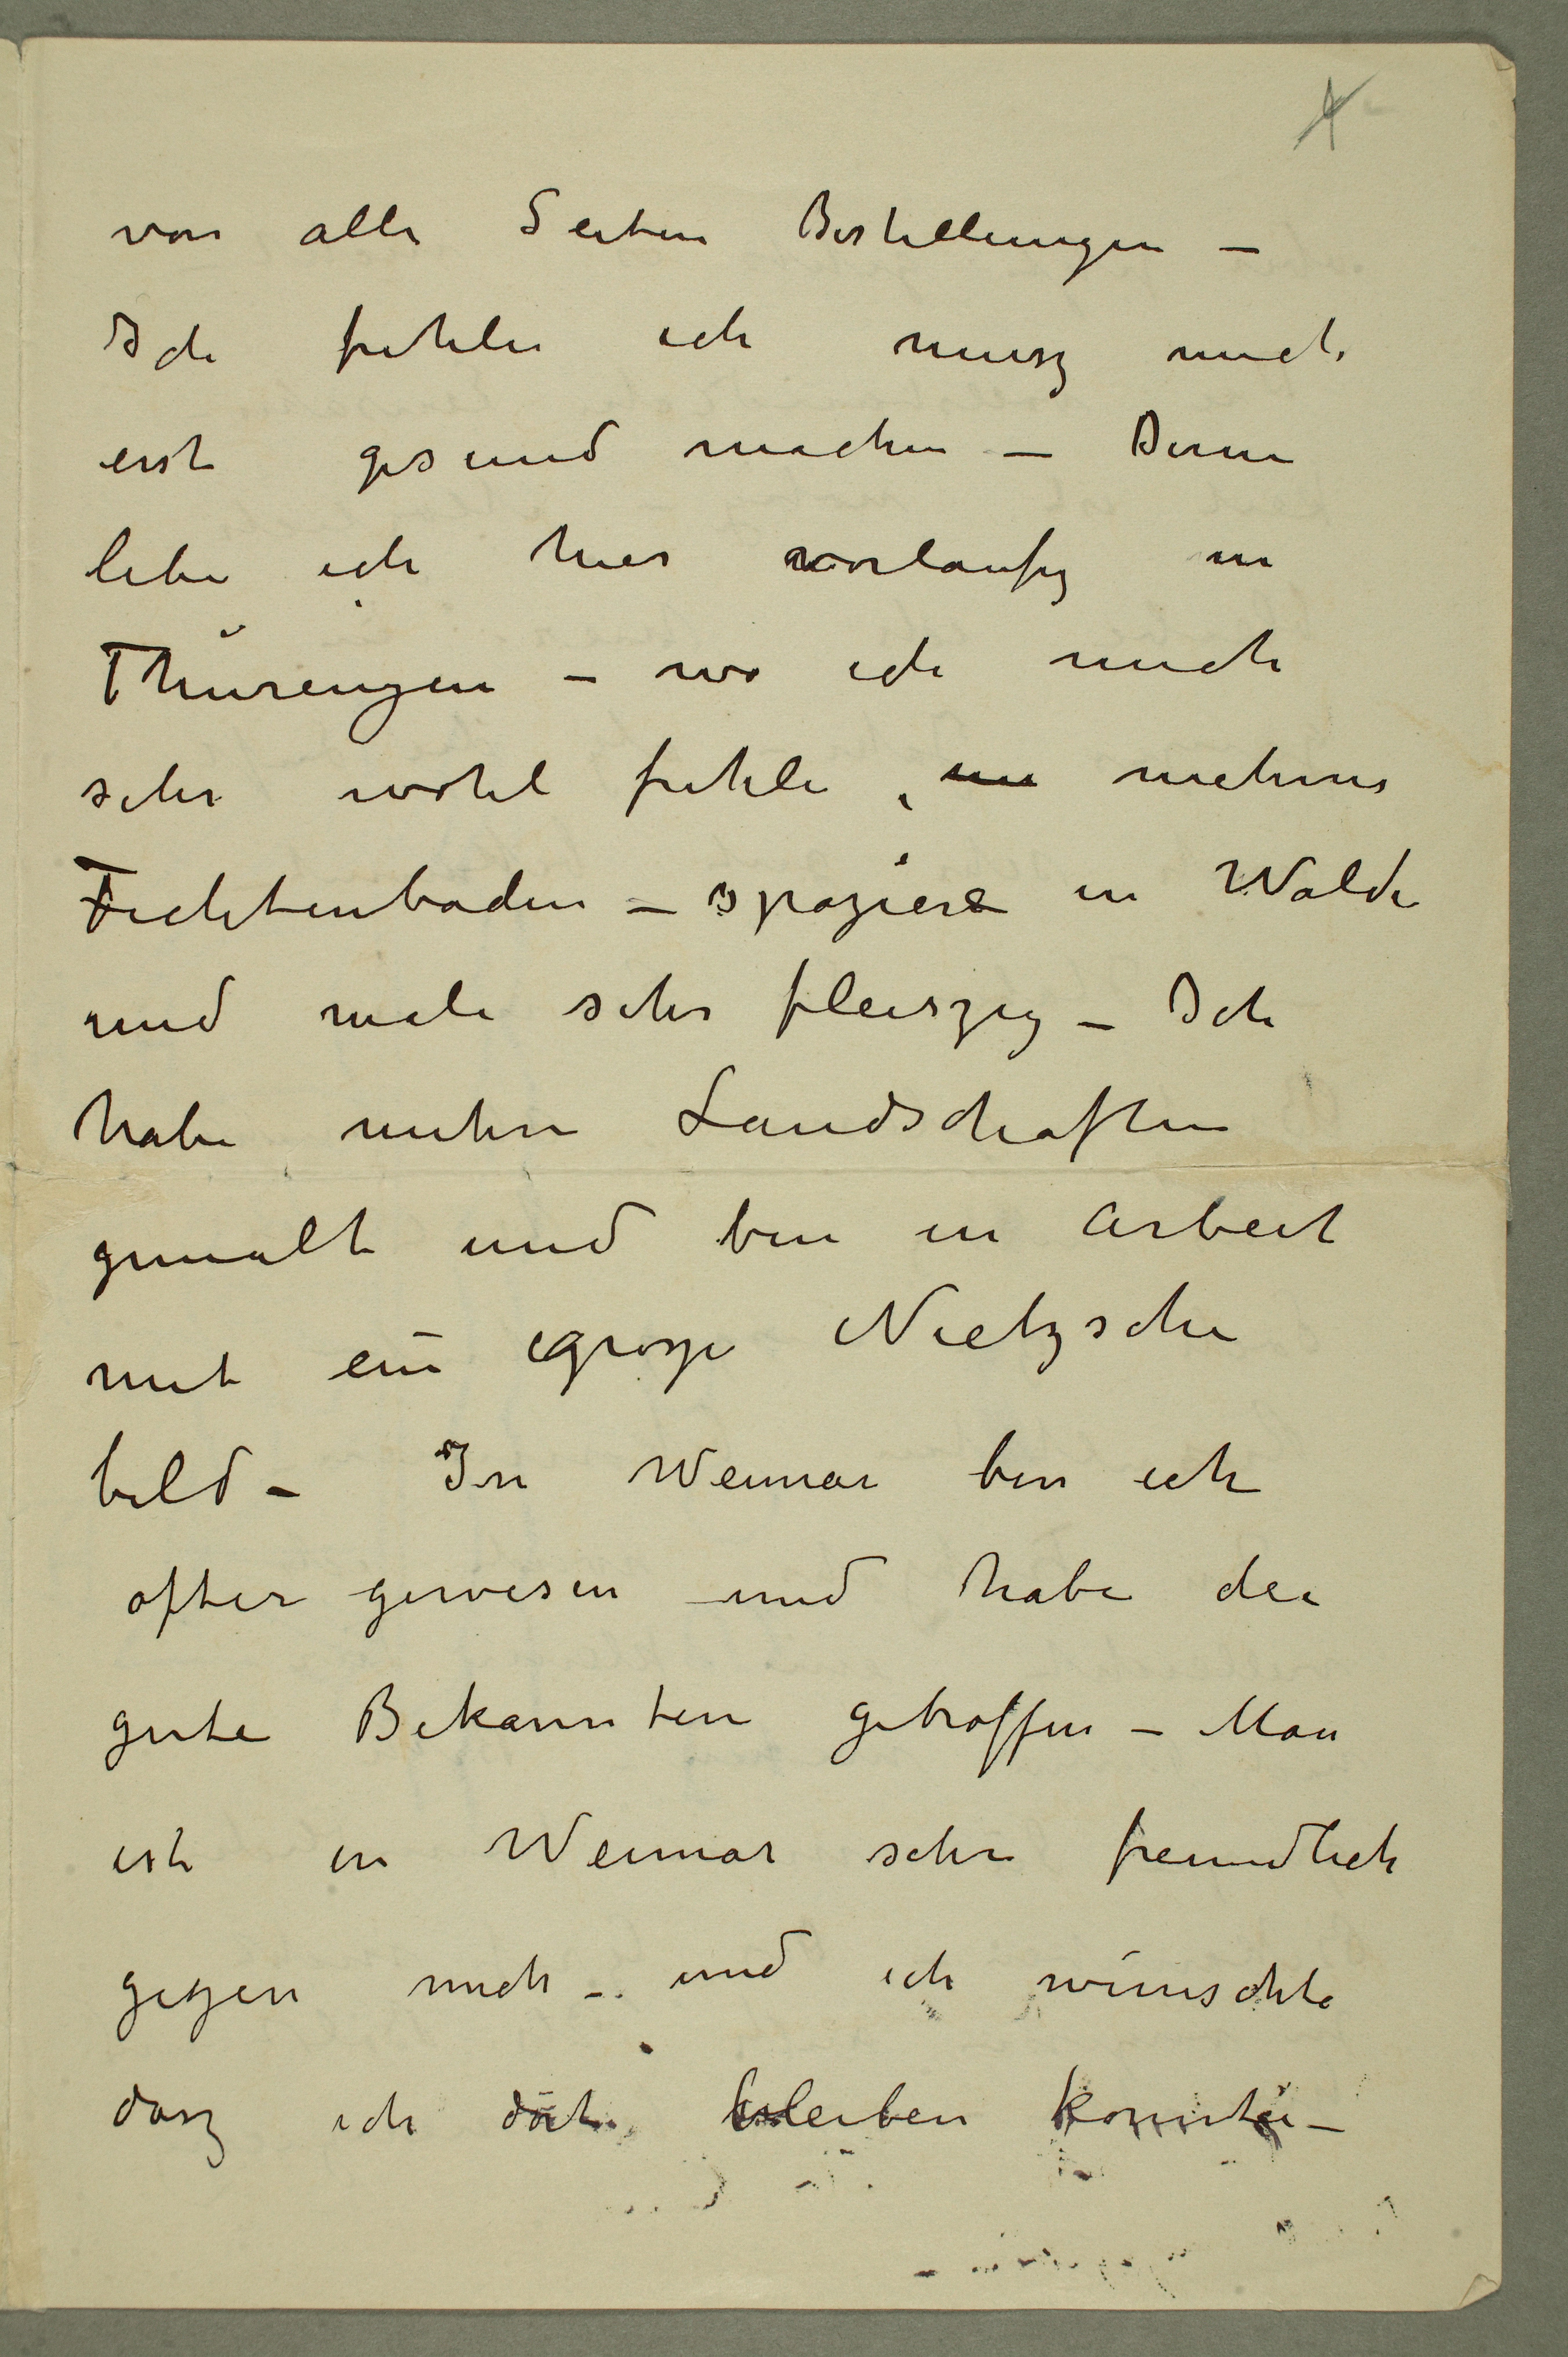 von alle Seiten Bestellungen –
Ich fuhle ich musz mich
erst gesund machen – Denn
lebe ich hier vorlaufig in
Thüringen – wo ich mich
sehr wohl fuhle, nehme
Fichtenbaden – spaziere in Walde
und male sehr fleiszig – Ich
habe mehre Landschaften
gemalt und bin in Arbeit
mit ein grosze Nietzsche
bild – In Weimar bin ich
ofter gewesen und habe die
gute Bekannten getroffen – Man
ist in Weimar sehr freundlich
gegen mich – und ich wünschte
dasz ich bleiben konnte –